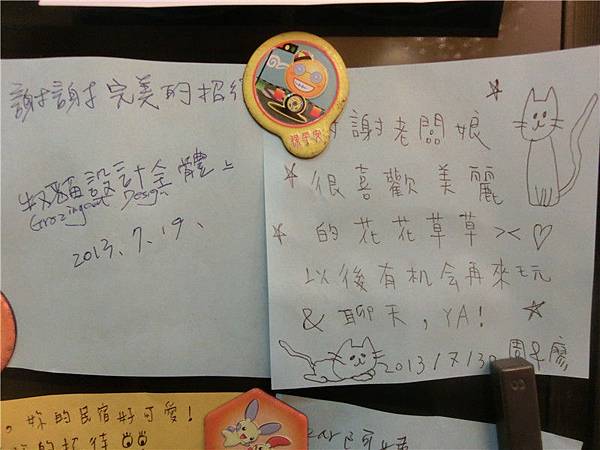 謝謝完美的招待
牧貓設計全體上
Grazingcat Design
2013.7.19.
謝老闆娘
很喜歡美麗
的花花草草><♡
以後有机会再來玩
& 聊天，YA!
2013/7/30 周&廖
，妳的民宿好可愛！
的招待